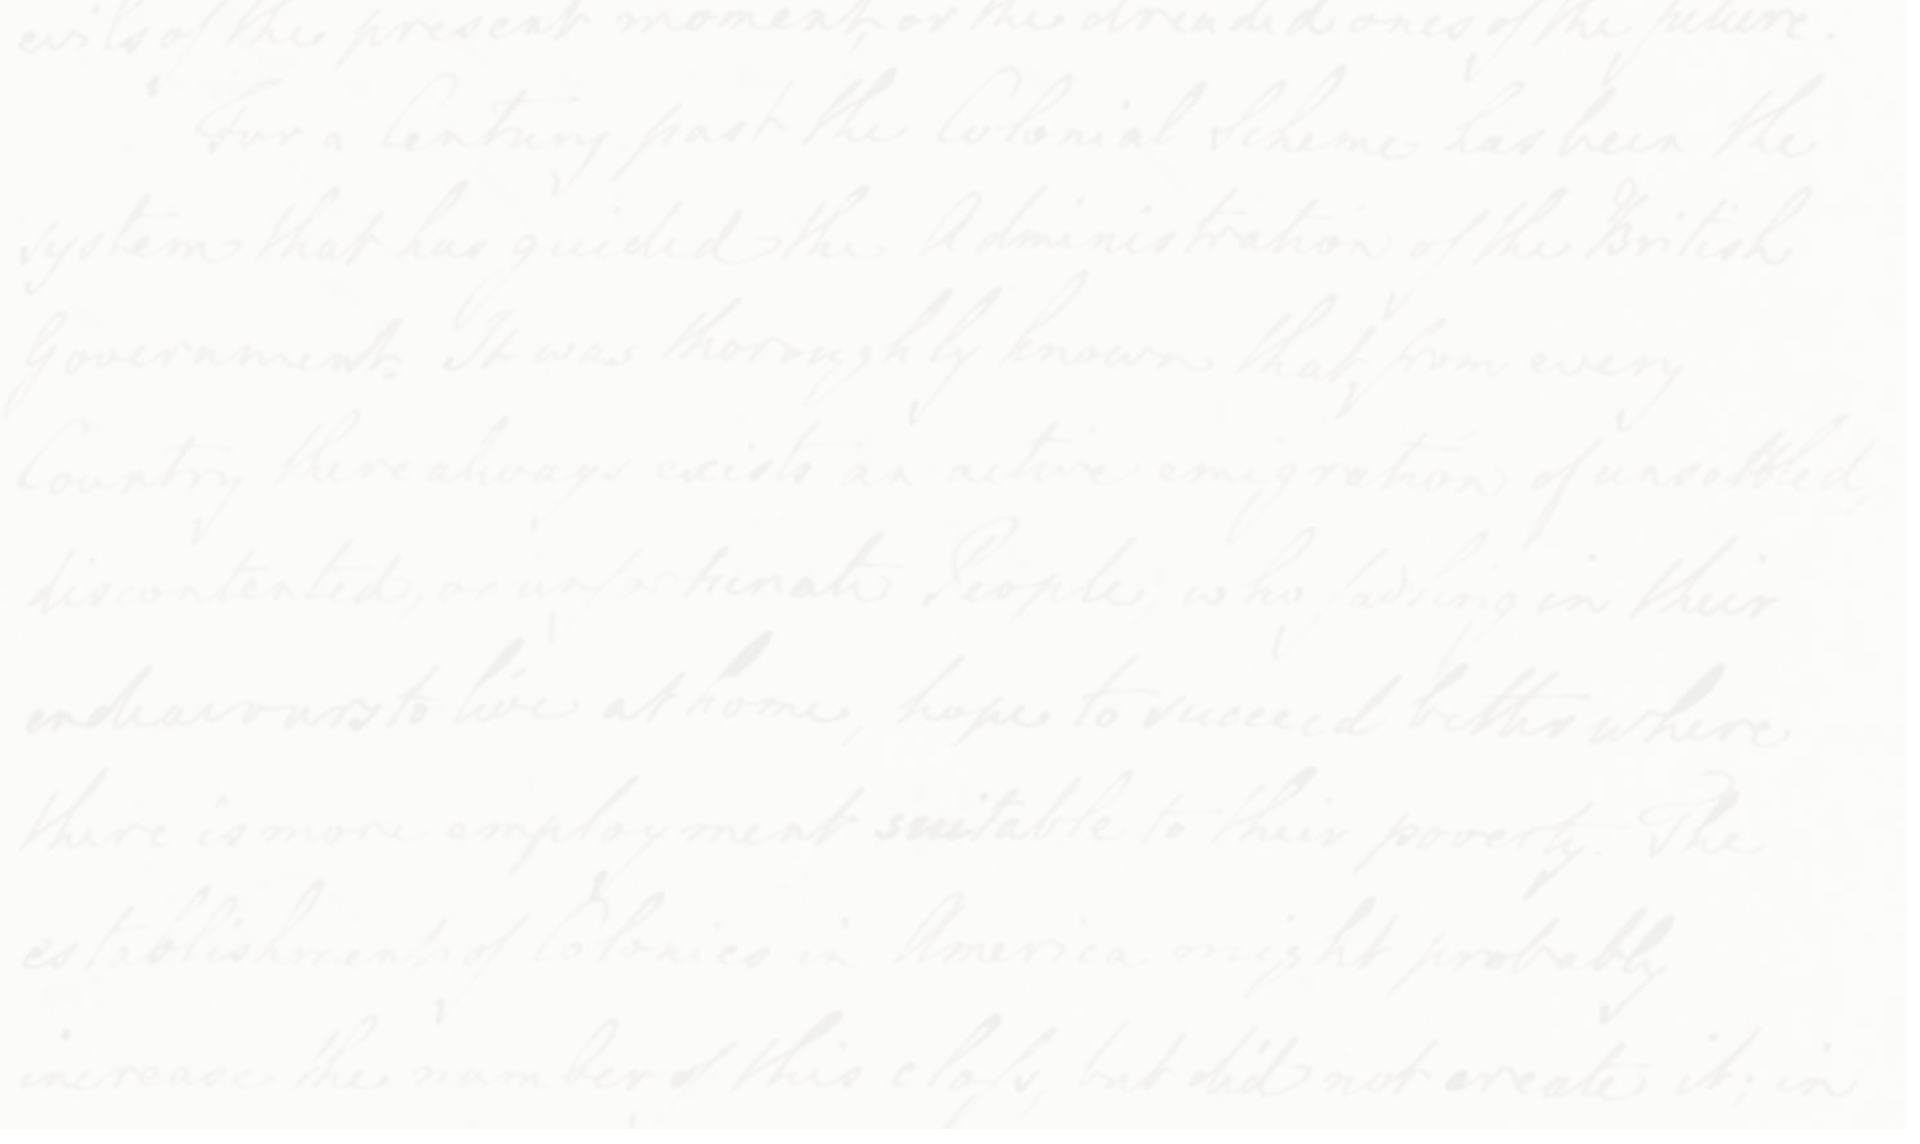 evils of the present moment, or the dreaded ones of the future.
For a Century past the Colonial Scheme has been the
system that has guided the Administration of the British
Government. It was thoroughly known that from every
Country there always exists an active emigration of unsettled,
discontented, or unfortunate People, who failing in their
endeavours to live at home, hope to succeed better where
there is more employment suitable to their poverty. The
establishment of Colonies in America might probably
increase the number of this class, but did not create it; in